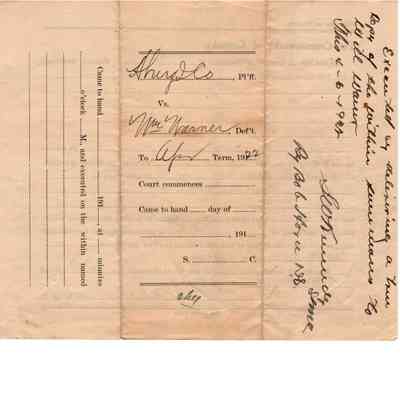 Came to hand 191 , at minutes
o'clock M., and executed on the within named
& Co Pl'ff.
Vs.
Wm Warner Def't.
To Apr Term, 1922
Court commences
Came to hand day of
, 191
S. C.
Executed by delivering a true
Copy of the within summons to
Will Warner
This 4-6-1922
By Bob